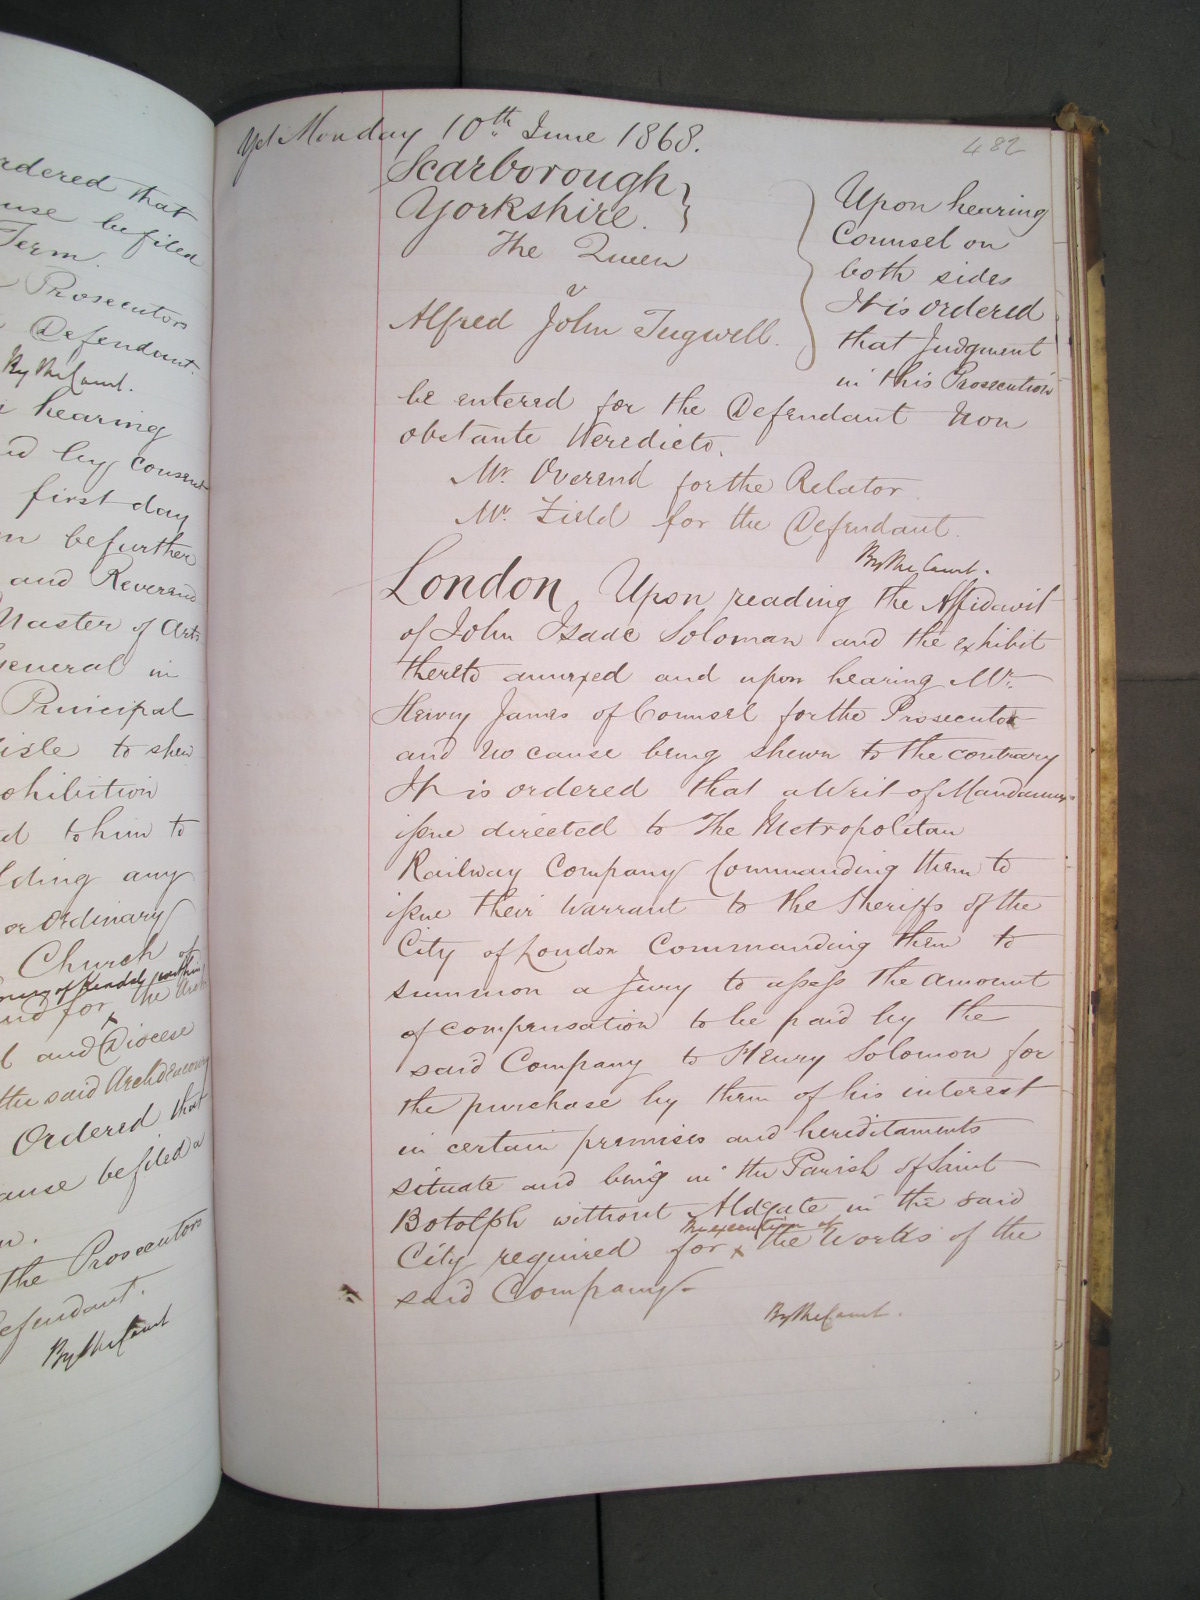 rdered that
use be filed
Term.
Prosecutors
Defendant.
By the Court.
hearing
by consent
first day
be further
and Reverend
Master of Arts
General in
Principal
isle to shew
ohibition
to him to
lding any
or Ordinary
Church of
of Kendal within
and for the
and Diocese
the said Archdeaconry
Ordered that
ause be filed a
the Prosecutors
efendant.
By the Court
Yet Monday 10th June 1868.
482
Scarborough
Yorkshire.
The Queen
v
Alfred John Tugwell.
Upon hearing
Counsel on
both sides
It is ordered
that Judgment
in this Prosecution
be entered for the Defendant Non
obstante Veredicto.
Mr. Overend for the Relator.
Mr. Field for the Defendant.
By the Court.
London Upon reading the Affidavit
of John Isaac Soloman and the exhibit
thereto annexed and upon hearing Mr.
Henry James of Counsel for the Prosecutor
and no cause being shewn to the contrary
It is ordered that a Writ of Mandamus
issue directed to The Metropolitan
Railway Company Commanding them to
issue their Warrant to the Sheriffs of the
City of London Commanding them to
summon a Jury to assess the amount
of compensation to be paid by the
said Company to Henry Solomon for
the purchase by them of his interest
in certain premises and hereditaments
situate and being in the Parish of Saint
Botolph without Aldgate in the said
the execution of
City required for x the Works of the
said Company
By the Court.